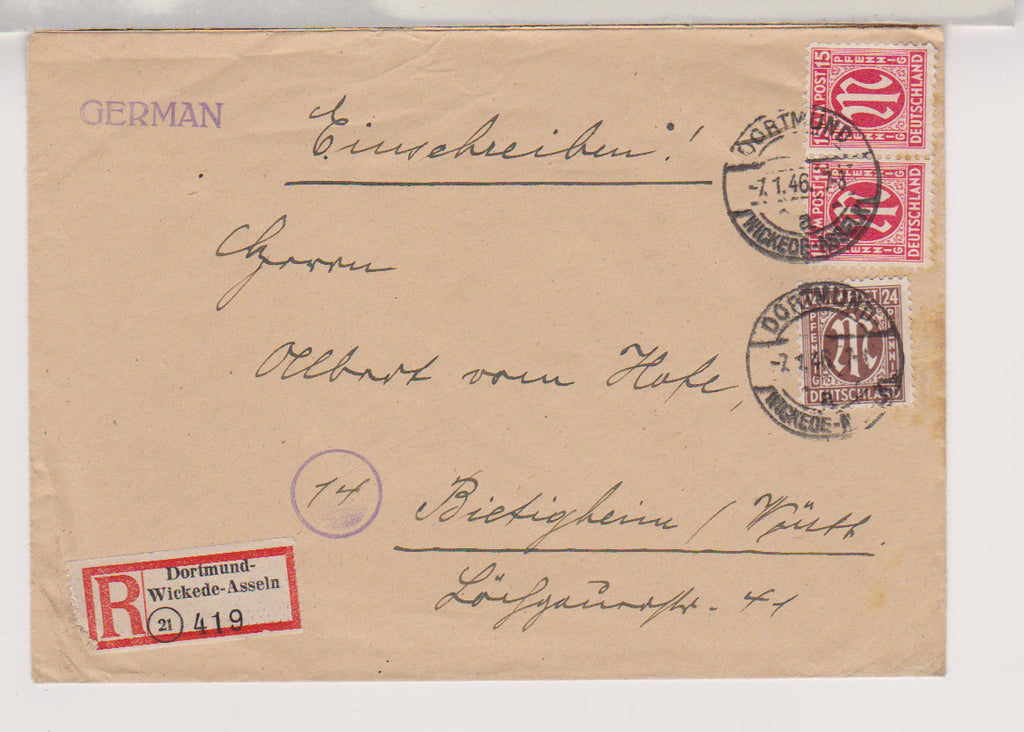 GERMAN
Einschreiben!
Herrn
Albert vom Hofe,
14
Bietigheim / Württ.
Löchgauerstr. 41
R
Dortmund-
Wickede-Asseln
21 419
15
PFENNIG
M POST
DEUTSCHLAND
M
15
PFENNIG
M POST
DEUTSCHLAND
M
DORTMUND-
-7.1.46. 7-8
a
WICKEDE-ASSELN
24
PFENNIG
DEUTSCHLAND
M
DORTMUND-
-7.1.46.
a
WICKEDE-